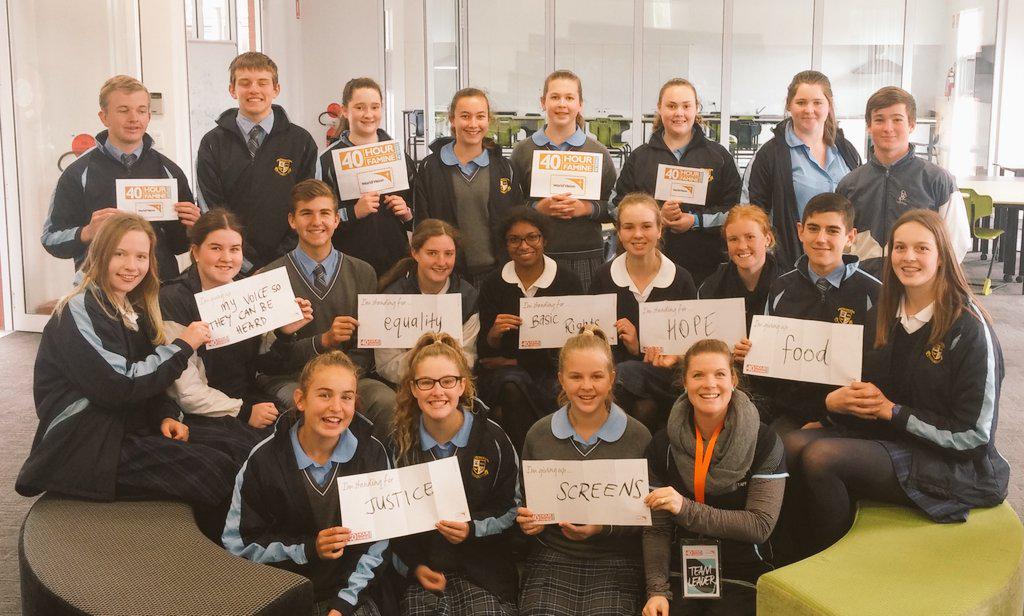 40 HOUR
FAMINE
World Vision
40 HOUR
FAMINE
World Vision
40 HOUR
FAMINE
World Vision
40 HOUR
FAMINE
World Vision
I'm giving up...
MY VOICE SO
THEY CAN BE
HEARD
I'm standing for...
equality
I'm standing for...
Basic Rights
I'm standing for...
HOPE
I'm giving up...
food
I'm standing for...
JUSTICE
I'm giving up...
SCREENS
STAFF
TEAM
LEADER